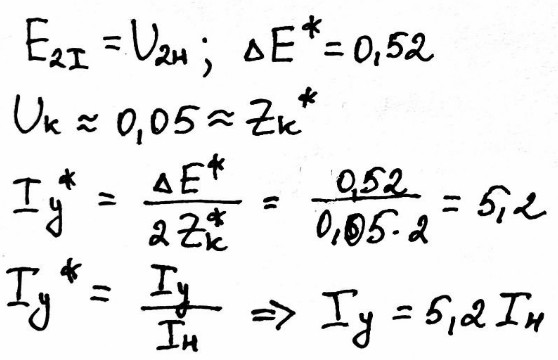 E₂I = U₂н ; ΔE* = 0,52
Uк ≈ 0,05 ≈ Zк*
Iу* = ΔE* / 2Zк* = 0,52 / 0,05·2 = 5,2
Iу* = Iу / Iн => Iу = 5,2 Iн